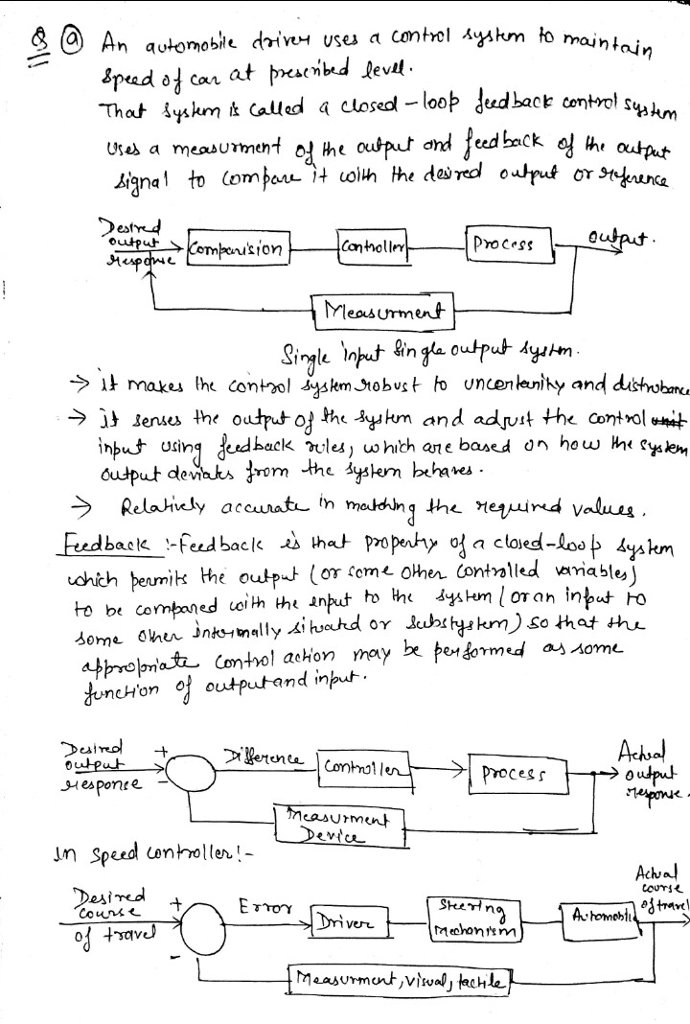 Q (a) An automobile driver uses a control system to maintain
speed of car at prescribed level.
That system is called a closed-loop feedback control system
uses a measurment of the output and feedback of the output
signal to compare it with the desired output or reference
Desired
output
response
Comparision
Controller
Process
output.
Measurment
Single input single output system.
→ it makes the control system robust to uncertanity and distrubance
→ it senses the output of the system and adjust the control unit
input using feedback rules, which are based on how the system
output deviates from the system behaves.
→ Relatively accurate in matching the required values.
Feedback :- Feedback is that property of a closed-loop system
which permits the output (or some other controlled variables)
to be compared with the input to the system (or an input to
some other internally situated or substystem) so that the
appropriate control action may be performed as some
function of output and input.
Desired
output
response
+
-
Difference
Controller
process
Actual
output
response.
Measurment
Device
In speed controller:-
Desired
course
of travel
+
-
Error
Driver
Steering
Mechonism
Automobile
Actual
course
of travel
Measurment, visual, tactile